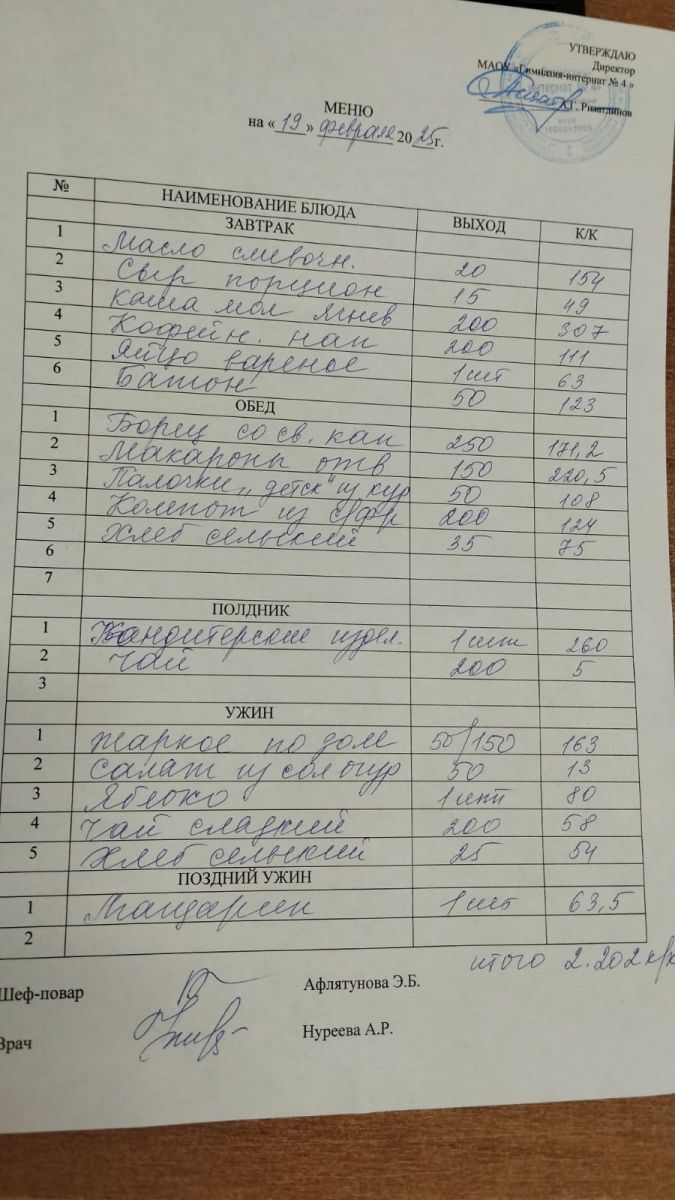 УТВЕРЖДАЮ
Директор
МАОУ «Гимназия-интернат № 4 »
А.Г. Ризатдинов
МЕНЮ
на « 19 » февраля 20 25 г.
№ НАИМЕНОВАНИЕ БЛЮДА ВЫХОД К/К
ЗАВТРАК
1 Масло сливочн. 20 154
2 Сыр порцион 15 49
3 каша мол ячнев 200 307
4 Кофейн. нап 200 111
5 Яйцо вареное 1 шт 63
6 Батон 50 123
ОБЕД
1 Борщ со св. кап 250 171,2
2 Макароны отв 150 220,5
3 Палочки „детск" из кур 50 108
4 Компот из с/фр 200 124
5 Хлеб сельский 35 75
6
7
ПОЛДНИК
1 Кандитерском издел. 1 шт 260
2 чай 200 5
3
УЖИН
1 жаркое по дом 50/150 163
2 салат из сол огур 50 13
3 Яблоко 1 шт 80
4 чай сладкий 200 58
5 Хлеб сельский 25 54
ПОЗДНИЙ УЖИН
1 Мандарин 1 шт 63,5
2
итого 2.202 к/к
Шеф-повар Афлятунова Э.Б.
Врач Нуреева А.Р.